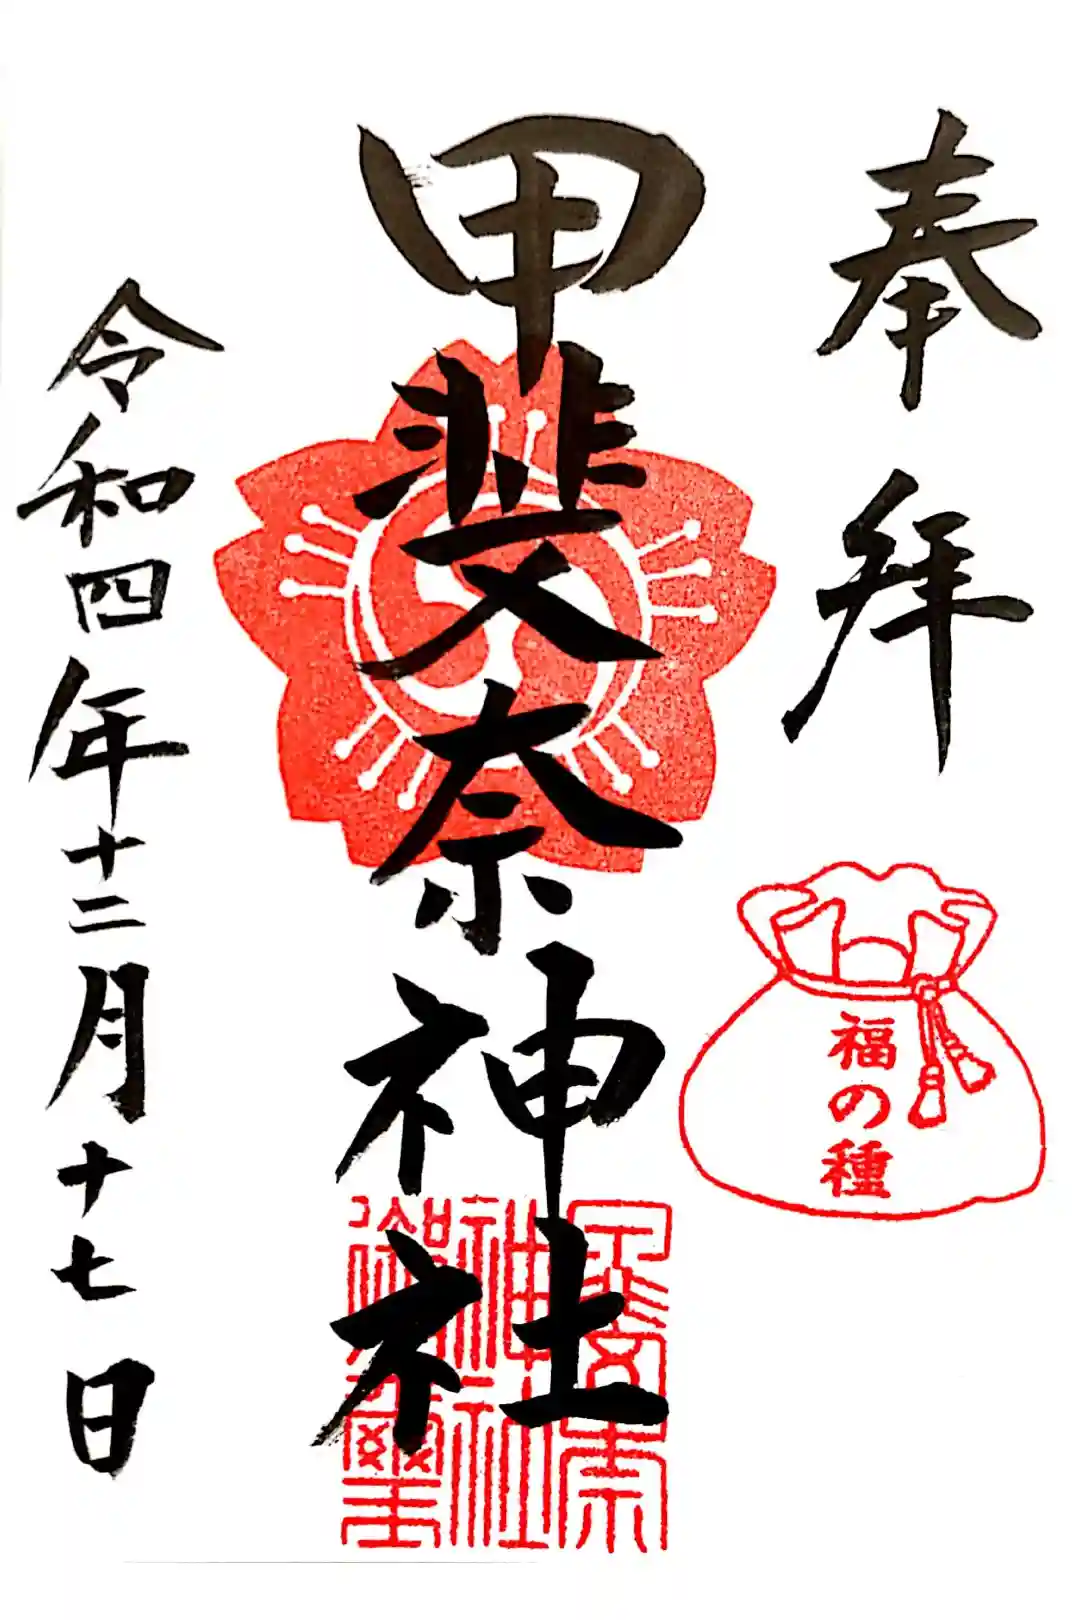 奉拝
福の種
甲斐奈神社
令和四年十二月十七日